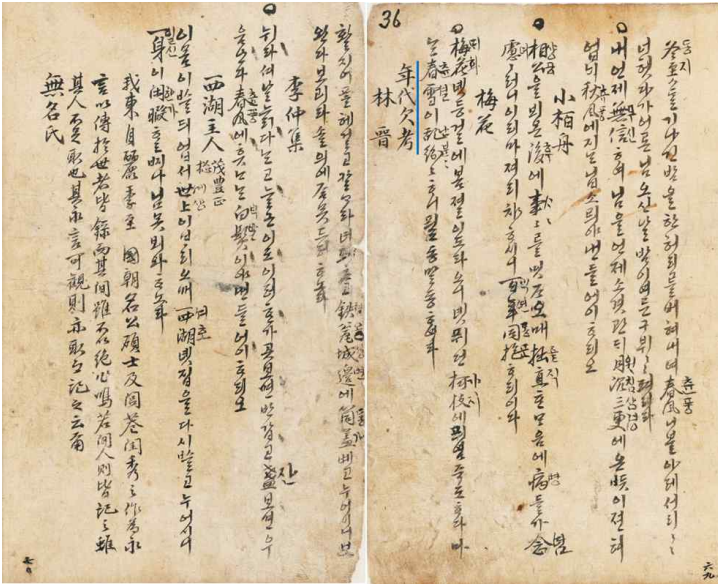 36
冬至ㅅ달 기나긴 밤을 한 허리를 버혀 내여 春風 니불 아레 서리〃〃
너헛다가 어론님 오신 날 밤이여든 구뷔〃〃 펴리라
내 언제 無信ᄒᆞ여 님을 언제 소겻관ᄃᆡ 月沈三更에 온 ᄠᅳᆺ이 전혀
업ᄂᆡ 秋風에 지ᄂᆞᆫ 닙소ᄅᆡ야 낸들 어이 ᄒᆞ리오
小栢舟
相公을 뵈온 後에 事〃를 밋ᄌᆞ오매 拙直ᄒᆞᆫ ᄆᆞ음에 病들가 念
慮ㅣ러니 이리마 져리챠 ᄒᆞ시니 百年同抱 ᄒᆞ리이다
梅花
梅花 녯 등걸에 봄졀이 도라오니 녯 퓌던 柯枝에 픠염즉도 ᄒᆞ다마
ᄂᆞᆫ 春雪이 亂紛〃ᄒᆞ니 필동말동 ᄒᆞ여라
年代欠考
林晋
六九
활지어 ᄑᆞᆯ헤 걸고 칼 ᄀᆞ라 녑희 ᄎᆞ고 鐵瓮城邊에 筒盖 베고 누어시니 보
완다 보라 소ᄅᆡ에 ᄌᆞᆷ못드러 ᄒᆞ노라
李仲集
뉘라셔 날 늙다ᄂᆞᆫ고 늘근이도 이러ᄒᆞᆫ가 곳 보면 반갑고 盞 보면 우
음난다 春風에 흣ᄂᆞᄂᆞᆫ 白髮이야 낸들 어이 ᄒᆞ리오
西湖主人 茂豊正
이 몸이 쓸ᄃᆡ 업서 世上이 ᄇᆞ리오매 西湖 녯 집을 다시 쓸고 누어시니
一身이 閑暇ᄒᆞᆯ지나 님 못 뵈와 ᄒᆞ노라
我東自麗季至 國朝名公碩士及閭巷閨秀之作爲永
言以傳於世者皆錄而其間雖 則皆記之雖
其人不足取也其永言可觀則亦取以記之云爾
無名氏
七十